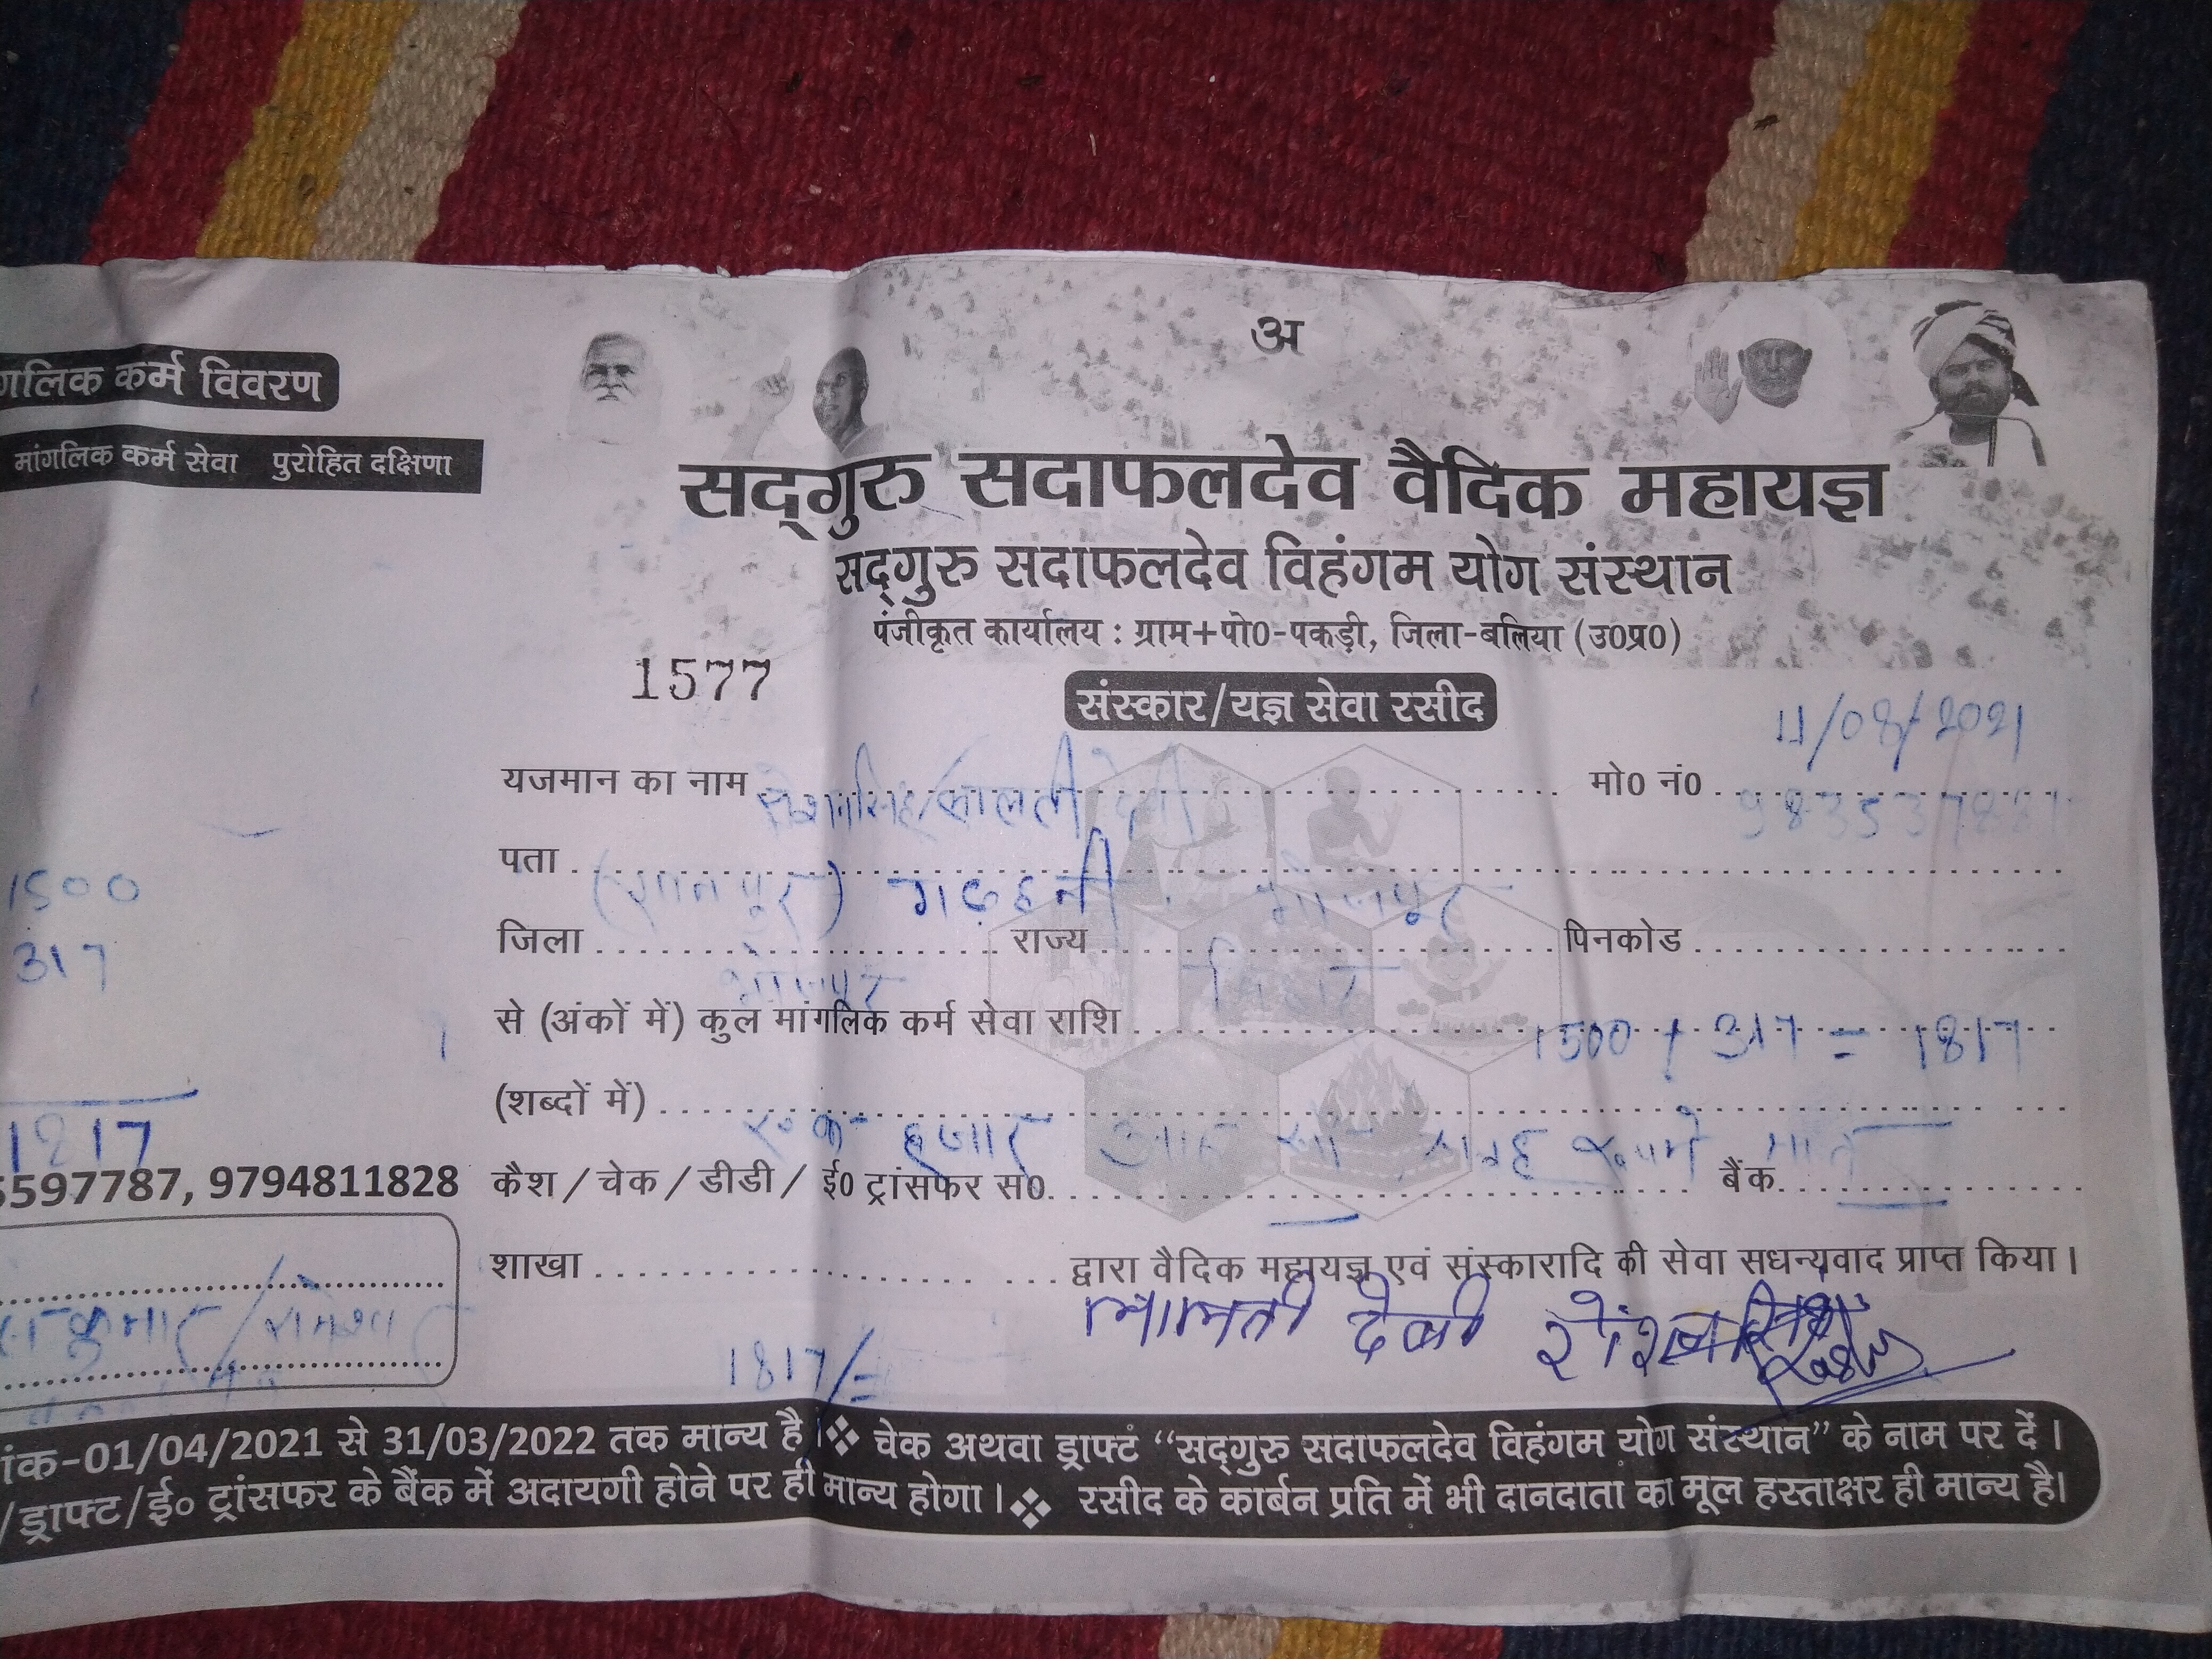 अ
गलिक कर्म विवरण
मांगलिक कर्म सेवा पुरोहित दक्षिणा
1500
317
1817
5597787, 9794811828
सद्गुरु सदाफलदेव वैदिक महायज्ञ
सद्गुरु सदाफलदेव विहंगम योग संस्थान
पंजीकृत कार्यालय : ग्राम+पो0-पकड़ी, जिला-बलिया (उ0प्र0)
1577
संस्कार/यज्ञ सेवा रसीद
11/08/2021
यजमान का नाम मो0 नं0
पता गढ़हनी भोजपुर
जिला भोजपुर राज्य बिहार पिनकोड
से (अंकों में) कुल मांगलिक कर्म सेवा राशि 1500 + 317 = 1817
(शब्दों में) एक हजार आठ सौ सतरह रूपये मात्र
कैश / चेक / डीडी / ई0 ट्रांसफर स0 बैंक
शाखा द्वारा वैदिक महायज्ञ एवं संस्कारादि की सेवा सधन्यवाद प्राप्त किया।
देवी
1817/=
ांक-01/04/2021 से 31/03/2022 तक मान्य है। ❖ चेक अथवा ड्राफ्ट “सद्गुरु सदाफलदेव विहंगम योग संस्थान” के नाम पर दें।
/ड्राफ्ट/ई० ट्रांसफर के बैंक में अदायगी होने पर ही मान्य होगा। ❖ रसीद के कार्बन प्रति में भी दानदाता का मूल हस्ताक्षर ही मान्य है।